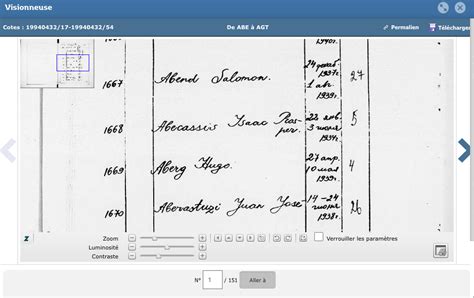 Visionneuse
Cotes : 19940432/17-19940432/54
De ABE à AGT
Permalien
Télécharger
1940г.
1667
Abend Salomon.
24 декаб.
1937г.
1 авг.
1939г.
27
1668
Abecassis Isaac Pros-
per.
22 янв.
3 июня
1937г.
5
1669
Aberg Hugo.
27 апр.
10 мая
1939г.
4
1670
Aberastuzi Juan Jose
14-24
июня
1938г.
26
Zoom
Luminosité
Contraste
Verrouiller les paramètres
N° 1 / 151 Aller à